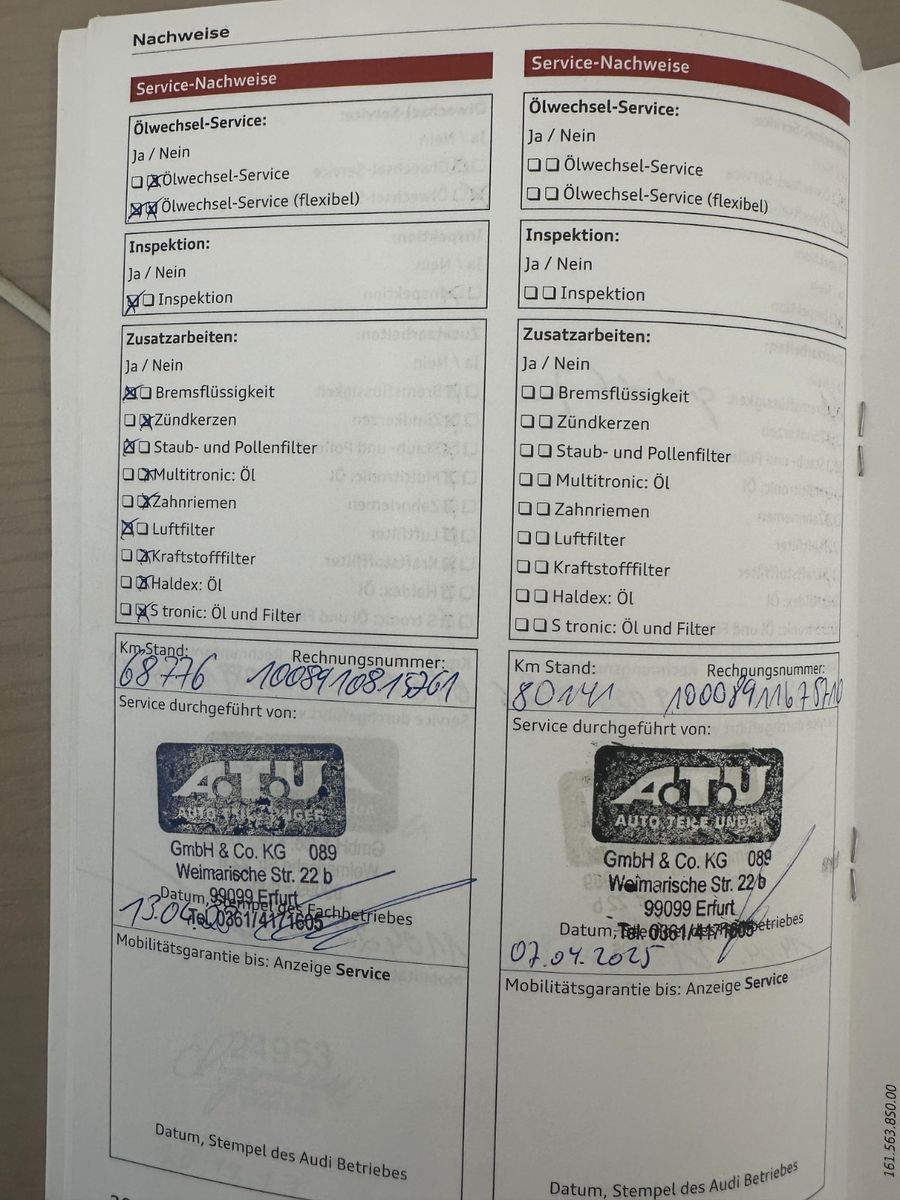 Nachweise
Service-Nachweise
Ölwechsel-Service:
Ja / Nein
Ölwechsel-Service
Ölwechsel-Service (flexibel)
Inspektion:
Ja / Nein
Inspektion
Zusatzarbeiten:
Ja / Nein
Bremsflüssigkeit
Zündkerzen
Staub- und Pollenfilter
Multitronic: Öl
Zahnriemen
Luftfilter
Kraftstofffilter
Haldex: Öl
S tronic: Öl und Filter
Km Stand: Rechnungsnummer:
68776 1008910815761
Service durchgeführt von:
A.T.U
AUTO TEILE UNGER
GmbH & Co. KG 089
Weimarische Str. 22 b
99099 Erfurt
Datum, Stempel des Fachbetriebes
Tel. 0361/4171605
13.04.
Mobilitätsgarantie bis: Anzeige Service
24953
Datum, Stempel des Audi Betriebes
Service-Nachweise
Ölwechsel-Service:
Ja / Nein
Ölwechsel-Service
Ölwechsel-Service (flexibel)
Inspektion:
Ja / Nein
Inspektion
Zusatzarbeiten:
Ja / Nein
Bremsflüssigkeit
Zündkerzen
Staub- und Pollenfilter
Multitronic: Öl
Zahnriemen
Luftfilter
Kraftstofffilter
Haldex: Öl
S tronic: Öl und Filter
Km Stand: Rechnungsnummer:
80141
Service durchgeführt von:
A.T.U
AUTO TEILE UNGER
GmbH & Co. KG 089
Weimarische Str. 22 b
99099 Erfurt
Datum,
Tel. 0361/4171605
07.04.2025
Mobilitätsgarantie bis: Anzeige Service
Datum, Stempel des Audi Betriebes
161.563.8S0.00